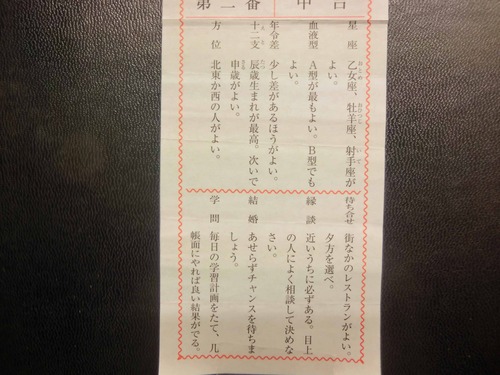 第二番 中吉
星座 乙女座、牡羊座、射手座が
よい。
血液型 A型が最もよい。B型でも
よい。
年令差 少し差があるほうがよい。
十二支 辰歳生まれが最高。次いで
申歳がよい。
方位 北東か西の人がよい。
待ち合せ 街なかのレストランがよい。
夕方を選べ。
縁談 近いうちに必ずある。目上
の人によく相談して決めな
さい。
結婚 あせらずチャンスを待ちま
しょう。
学問 毎日の学習計画をたて、几
帳面にやれば良い結果がでる。